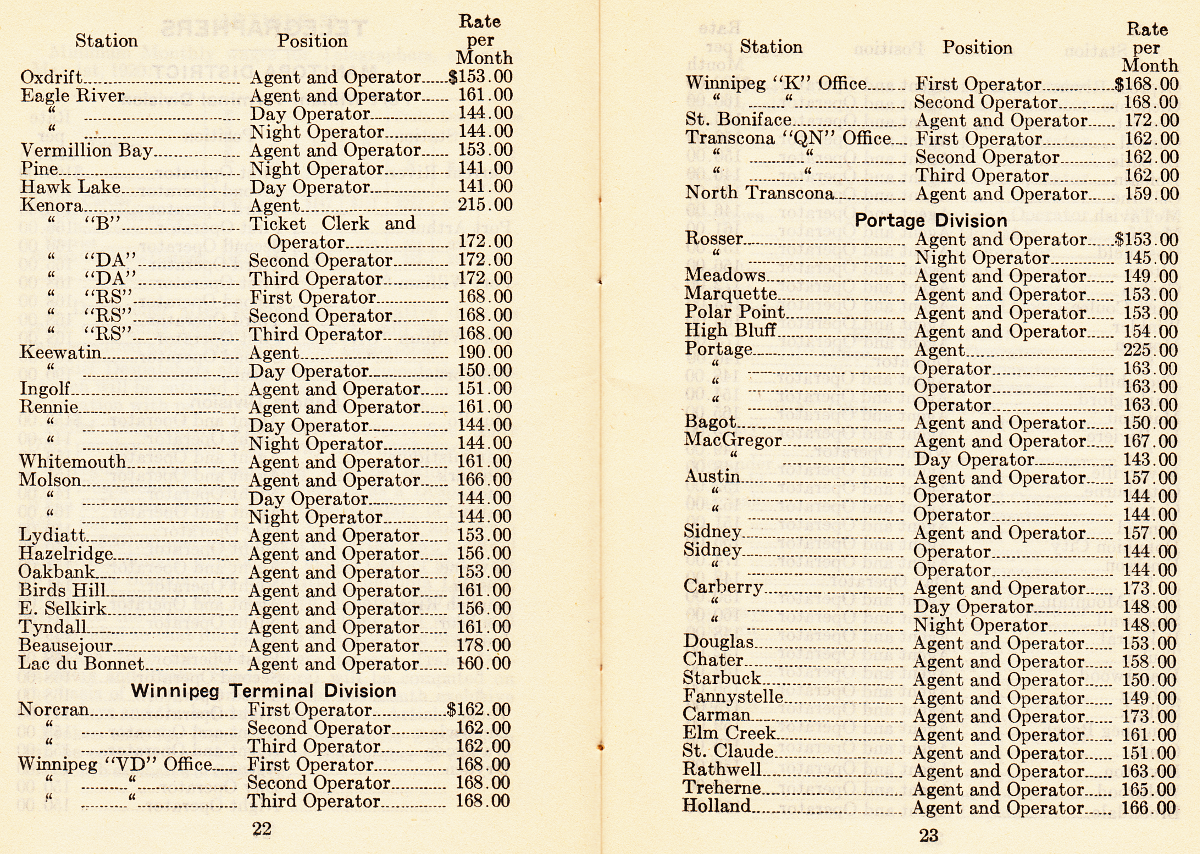 Station Position Rate per Month
Oxdrift Agent and Operator $153.00
Eagle River Agent and Operator 161.00
“ Day Operator 144.00
“ Night Operator 144.00
Vermillion Bay Agent and Operator 153.00
Pine Night Operator 141.00
Hawk Lake Day Operator 141.00
Kenora Agent 215.00
“ “B” Ticket Clerk and
Operator 172.00
“ “DA” Second Operator 172.00
“ “DA” Third Operator 172.00
“ “RS” First Operator 168.00
“ “RS” Second Operator 168.00
“ “RS” Third Operator 168.00
Keewatin Agent 190.00
“ Day Operator 150.00
Ingolf Agent and Operator 151.00
Rennie Agent and Operator 161.00
“ Day Operator 144.00
“ Night Operator 144.00
Whitemouth Agent and Operator 161.00
Molson Agent and Operator 166.00
“ Day Operator 144.00
“ Night Operator 144.00
Lydiatt Agent and Operator 153.00
Hazelridge Agent and Operator 156.00
Oakbank Agent and Operator 153.00
Birds Hill Agent and Operator 161.00
E. Selkirk Agent and Operator 156.00
Tyndall Agent and Operator 161.00
Beausejour Agent and Operator 178.00
Lac du Bonnet Agent and Operator 160.00
Winnipeg Terminal Division
Norcran First Operator $162.00
“ Second Operator 162.00
“ Third Operator 162.00
Winnipeg “VD” Office First Operator 168.00
“ “ Second Operator 168.00
“ “ Third Operator 168.00
22
Station Position Rate per Month
Winnipeg “K” Office First Operator $168.00
“ “ Second Operator 168.00
St. Boniface Agent and Operator 172.00
Transcona “QN” Office First Operator 162.00
“ “ Second Operator 162.00
“ “ Third Operator 162.00
North Transcona Agent and Operator 159.00
Portage Division
Rosser Agent and Operator $153.00
“ Night Operator 145.00
Meadows Agent and Operator 149.00
Marquette Agent and Operator 153.00
Polar Point Agent and Operator 153.00
High Bluff Agent and Operator 154.00
Portage Agent 225.00
“ Operator 163.00
“ Operator 163.00
“ Operator 163.00
Bagot Agent and Operator 150.00
MacGregor Agent and Operator 167.00
“ Day Operator 143.00
Austin Agent and Operator 157.00
“ Operator 144.00
“ Operator 144.00
Sidney Agent and Operator 157.00
Sidney Operator 144.00
“ Operator 144.00
Carberry Agent and Operator 173.00
“ Day Operator 148.00
“ Night Operator 148.00
Douglas Agent and Operator 153.00
Chater Agent and Operator 158.00
Starbuck Agent and Operator 150.00
Fannystelle Agent and Operator 149.00
Carman Agent and Operator 173.00
Elm Creek Agent and Operator 161.00
St. Claude Agent and Operator 151.00
Rathwell Agent and Operator 163.00
Treherne Agent and Operator 165.00
Holland Agent and Operator 166.00
23